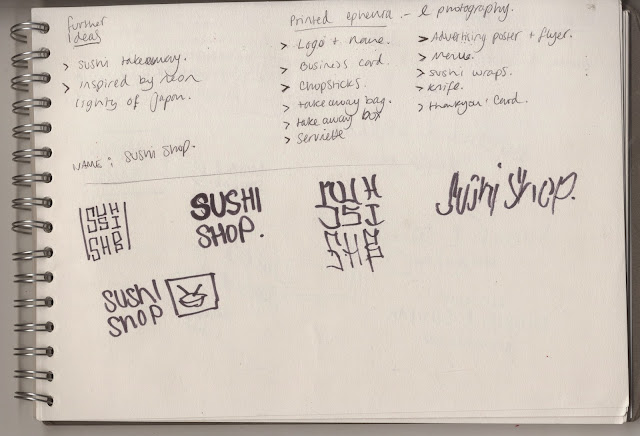 further
Ideas
> sushi takeaway.
> inspired by neon
lights of Japan.
NAME: SUSHI SHOP.
Printed ephemra. - & photography.
> Logo + name.
> Business card.
> Chopsticks.
> takeaway bag.
> take away box
> Serviette
> Advertising poster + flyer.
> Menue.
> sushi wraps.
> knife.
> thankyou' card.
SUSHI
SHOP.
sushi shop.
sushi
shop